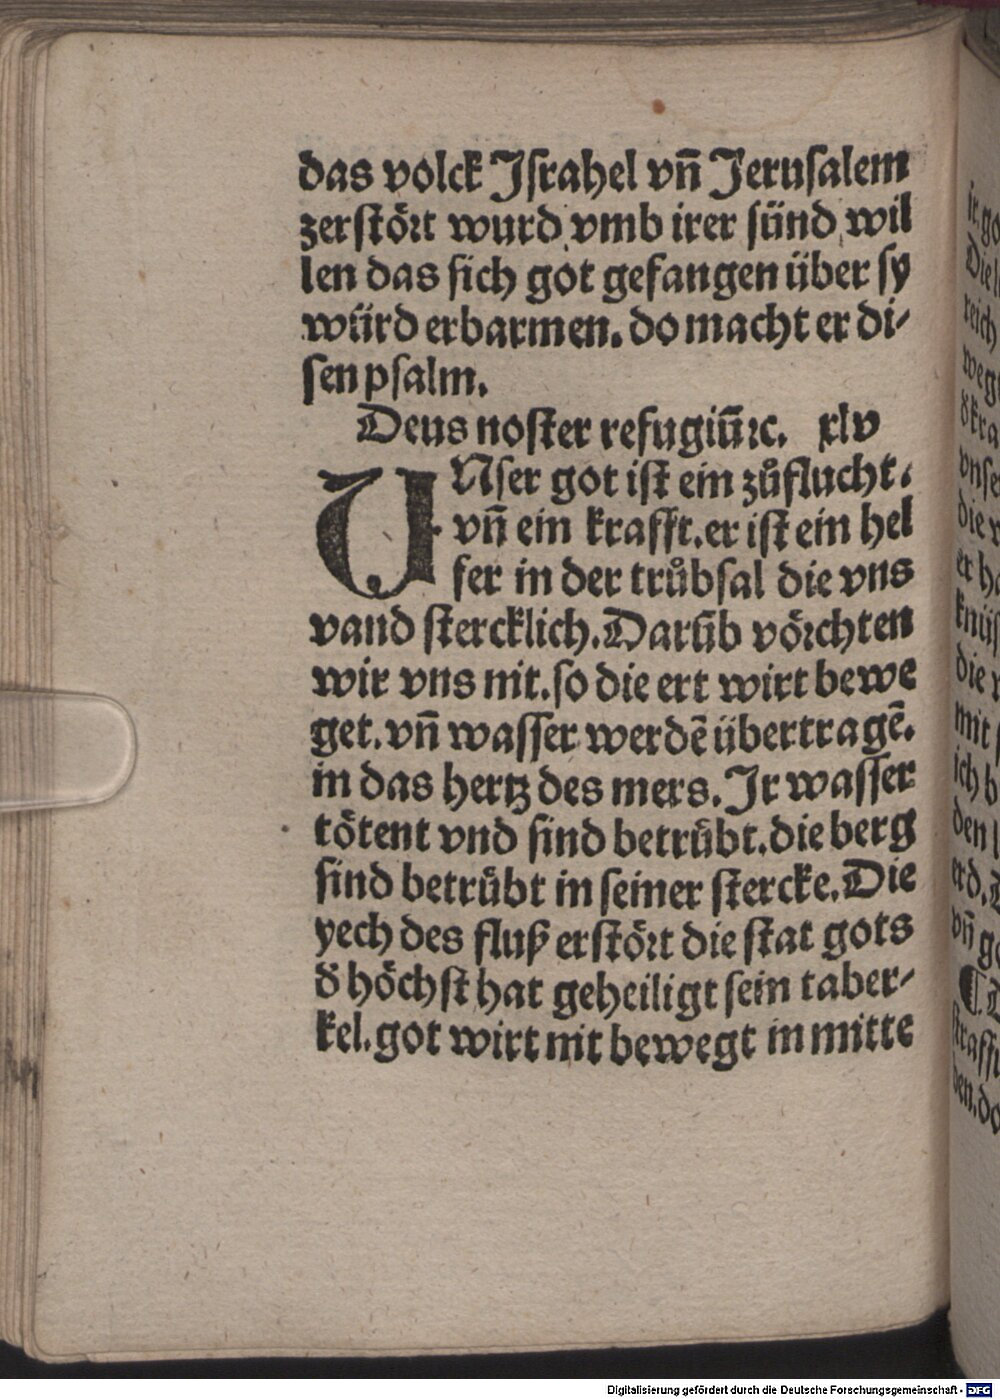 das volck Jsrahel vn̄ Jerusalem
zerstört wurd vmb irer sünd wil
len das sich got gefangen über sy
würd erbarmen. do macht er di-
sen psalm.
Deus noster refugiū ꝛc. xlv
UNser got ist ein zůflucht.
vn̄ ein krafft. er ist ein hel
fer in der trůbsal die vns
vand stercklich. Darūb vörchten
wir vns nit. so die ert wirt bewe
get. vn̄ wasser werdē übertragē.
in das hertz des mers. Jr wasser
tötent vnd sind betrůbt. die berg
sind betrůbt in seiner stercke. Die
yech des fluß erstört die stat gots
d̕ höchst hat geheiligt sein taber-
kel. got wirt nit bewegt in mitte
Digitalisierung gefördert durch die Deutsche Forschungsgemeinschaft - DFG